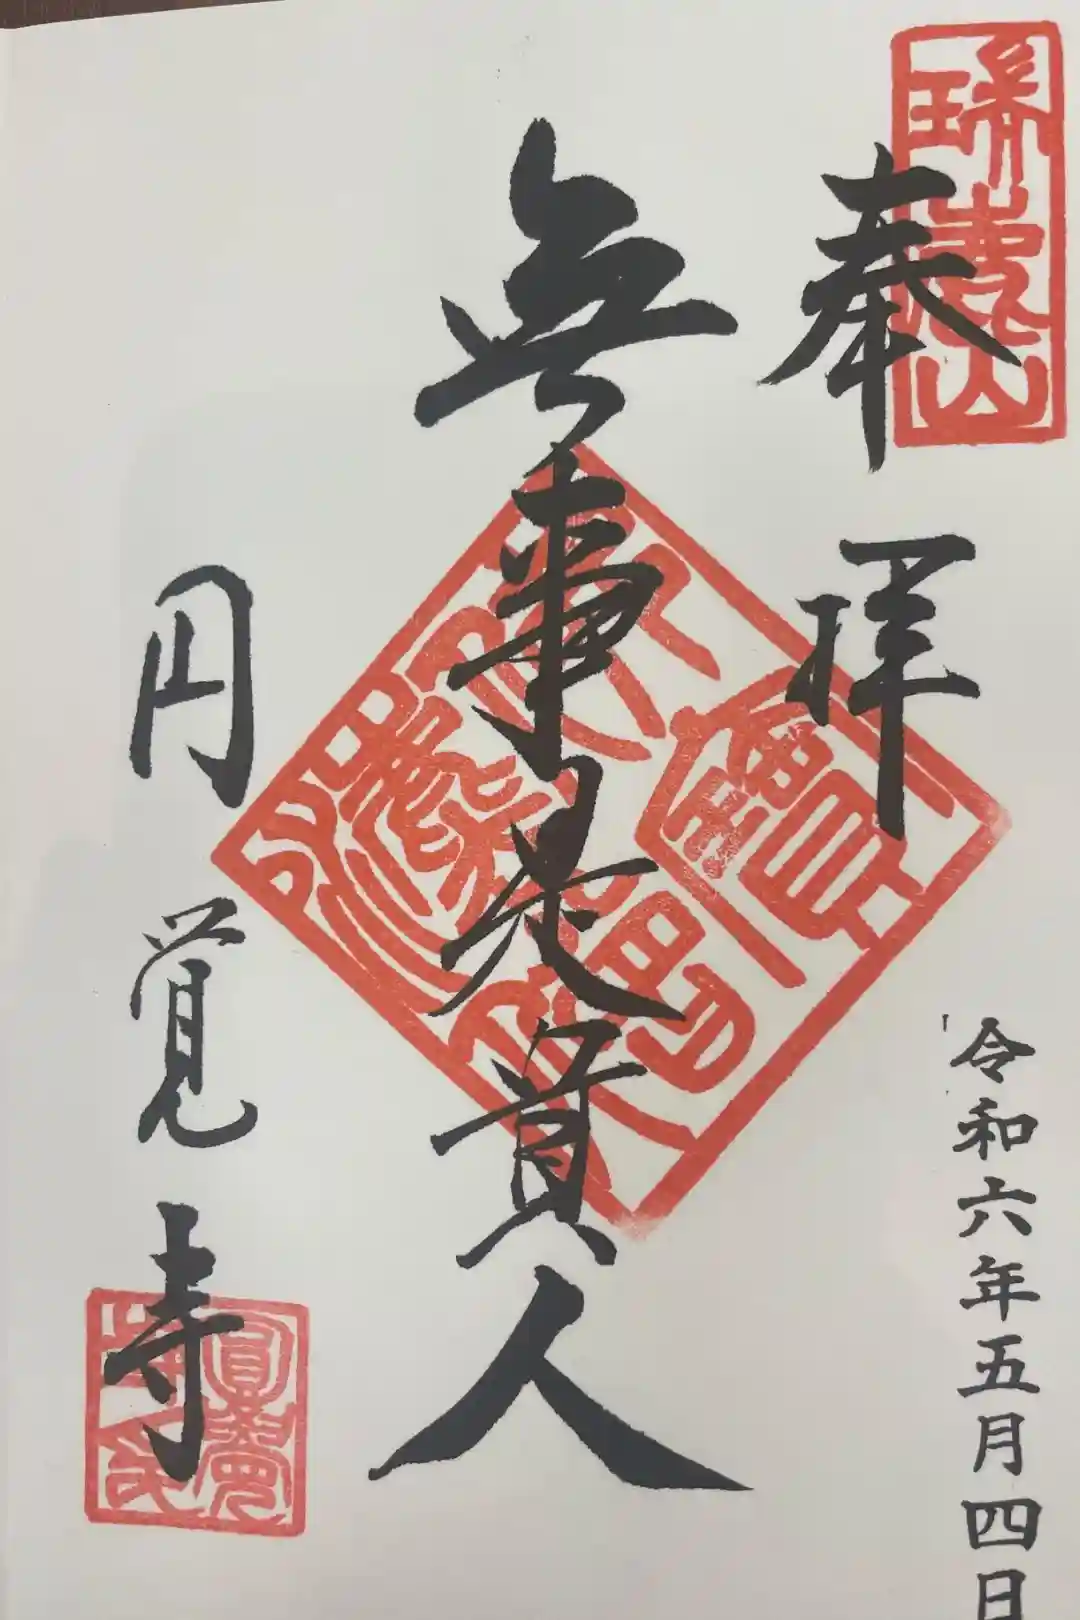 瑞鹿山
奉拝
令和六年五月四日
無事是貴人
円覚寺